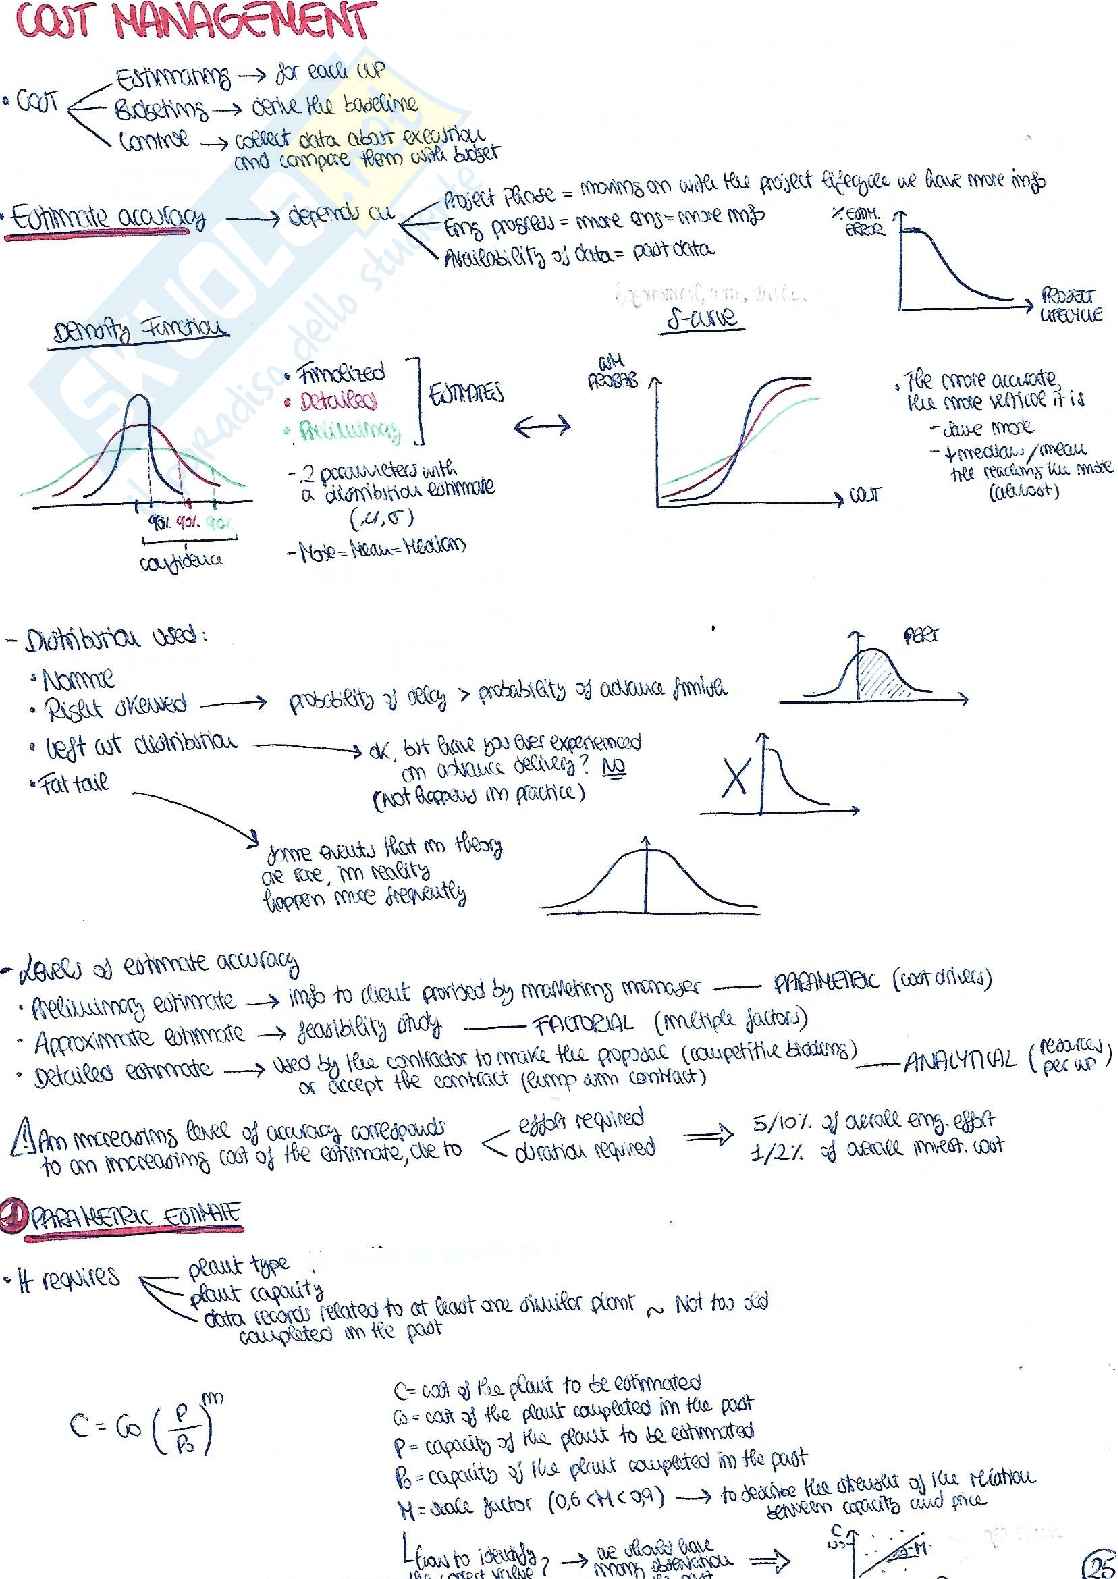 COST MANAGEMENT
• COST
Estimating → for each WP
Budgeting → derive the baseline
Control → collect data about execution
and compare them with budget
• Estimate accuracy → depends on
Project Phase = moving on with the project lifecycle we have more info
Eng progress = more eng = more info
Availability of data = past data
% ESTIM.
ERROR
PROJECT
LIFECYCLE
Density Function
S-curve
• Finalized
• Detailed
• Preliminary
ESTIMATES
- 2 parameters with
a distribution estimate
(μ, σ)
- Mode = Mean = Median
90% 90% 90%
confidence
CUM
PROBAB
COST
• The more accurate,
the more vertical it is
- save more
median/mean
(at cost)
- Distribution used:
• Normal
• Right skewed → probability of delay > probability of advance finish
• Left cut distribution → OK, but have you ever experienced
an advance delivery? NO
(Not happens in practice)
• Fat tail
some events that in theory
are rare, in reality
happen more frequently
PERT
- Levels of estimate accuracy
• Preliminary estimate → info to client provided by marketing manager — PARAMETRIC (cost drivers)
• Approximate estimate → feasibility study — FACTORIAL (multiple factors)
• Detailed estimate → used by the contractor to make the proposal (competitive bidding)
or accept the contract (lump sum contract) — ANALYTICAL (resources
per WP)
An increasing level of accuracy corresponds
to an increasing cost of the estimate, due to
effort required
duration required
⇒ 5/10% of overall eng. effort
1/2% of overall invest. cost
① PARAMETRIC ESTIMATE
• It requires
plant type
plant capacity
data records related to at least one similar plant ~ Not too old
completed in the past
C = C0 (P/P0)^m
C = cost of the plant to be estimated
C0 = cost of the plant completed in the past
P = capacity of the plant to be estimated
P0 = capacity of the plant completed in the past
M = scale factor (0,6 < M < 0,9) → to describe the strenght of the relation
between capacity and price
how to identify
the correct value? → we should have
many observation
the past
M
25
SKUOLA.net
il paradiso dello studente